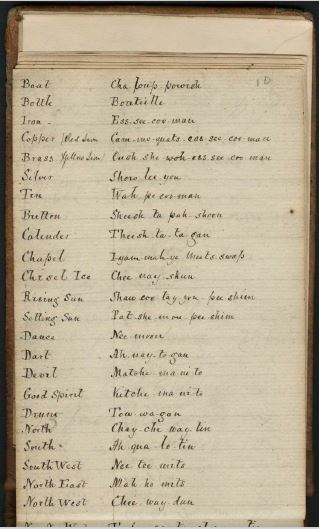 10
Boat Cha loup powish
Bottle Bouteille
Iron - Ess see coo man
Copper (Red Iron) Cam mo quats ess see coo man
Brass (Yellow Iron) Oush she woh ess see coo man
Silver Shoo lee you
Tin Wah pe coo man
Button Sheesh ta pah shoon
Calender Theesh ta ta gan
Chapel
Chisel Ice Chee nay shun
Rising Sun Shaw coo tay pee shim
Setting Sun Pat she mou pee shim
Dance Nee moon
Dart Ah nay to gan
Devil Matche ma ni to
Good Spirit Kitche ma ni to
Drum Tow wa gan
North Chay che way tin
South - Ah qua lo tin
South West Nee tee mits
North East Mah ko mits
North West Chee way dun